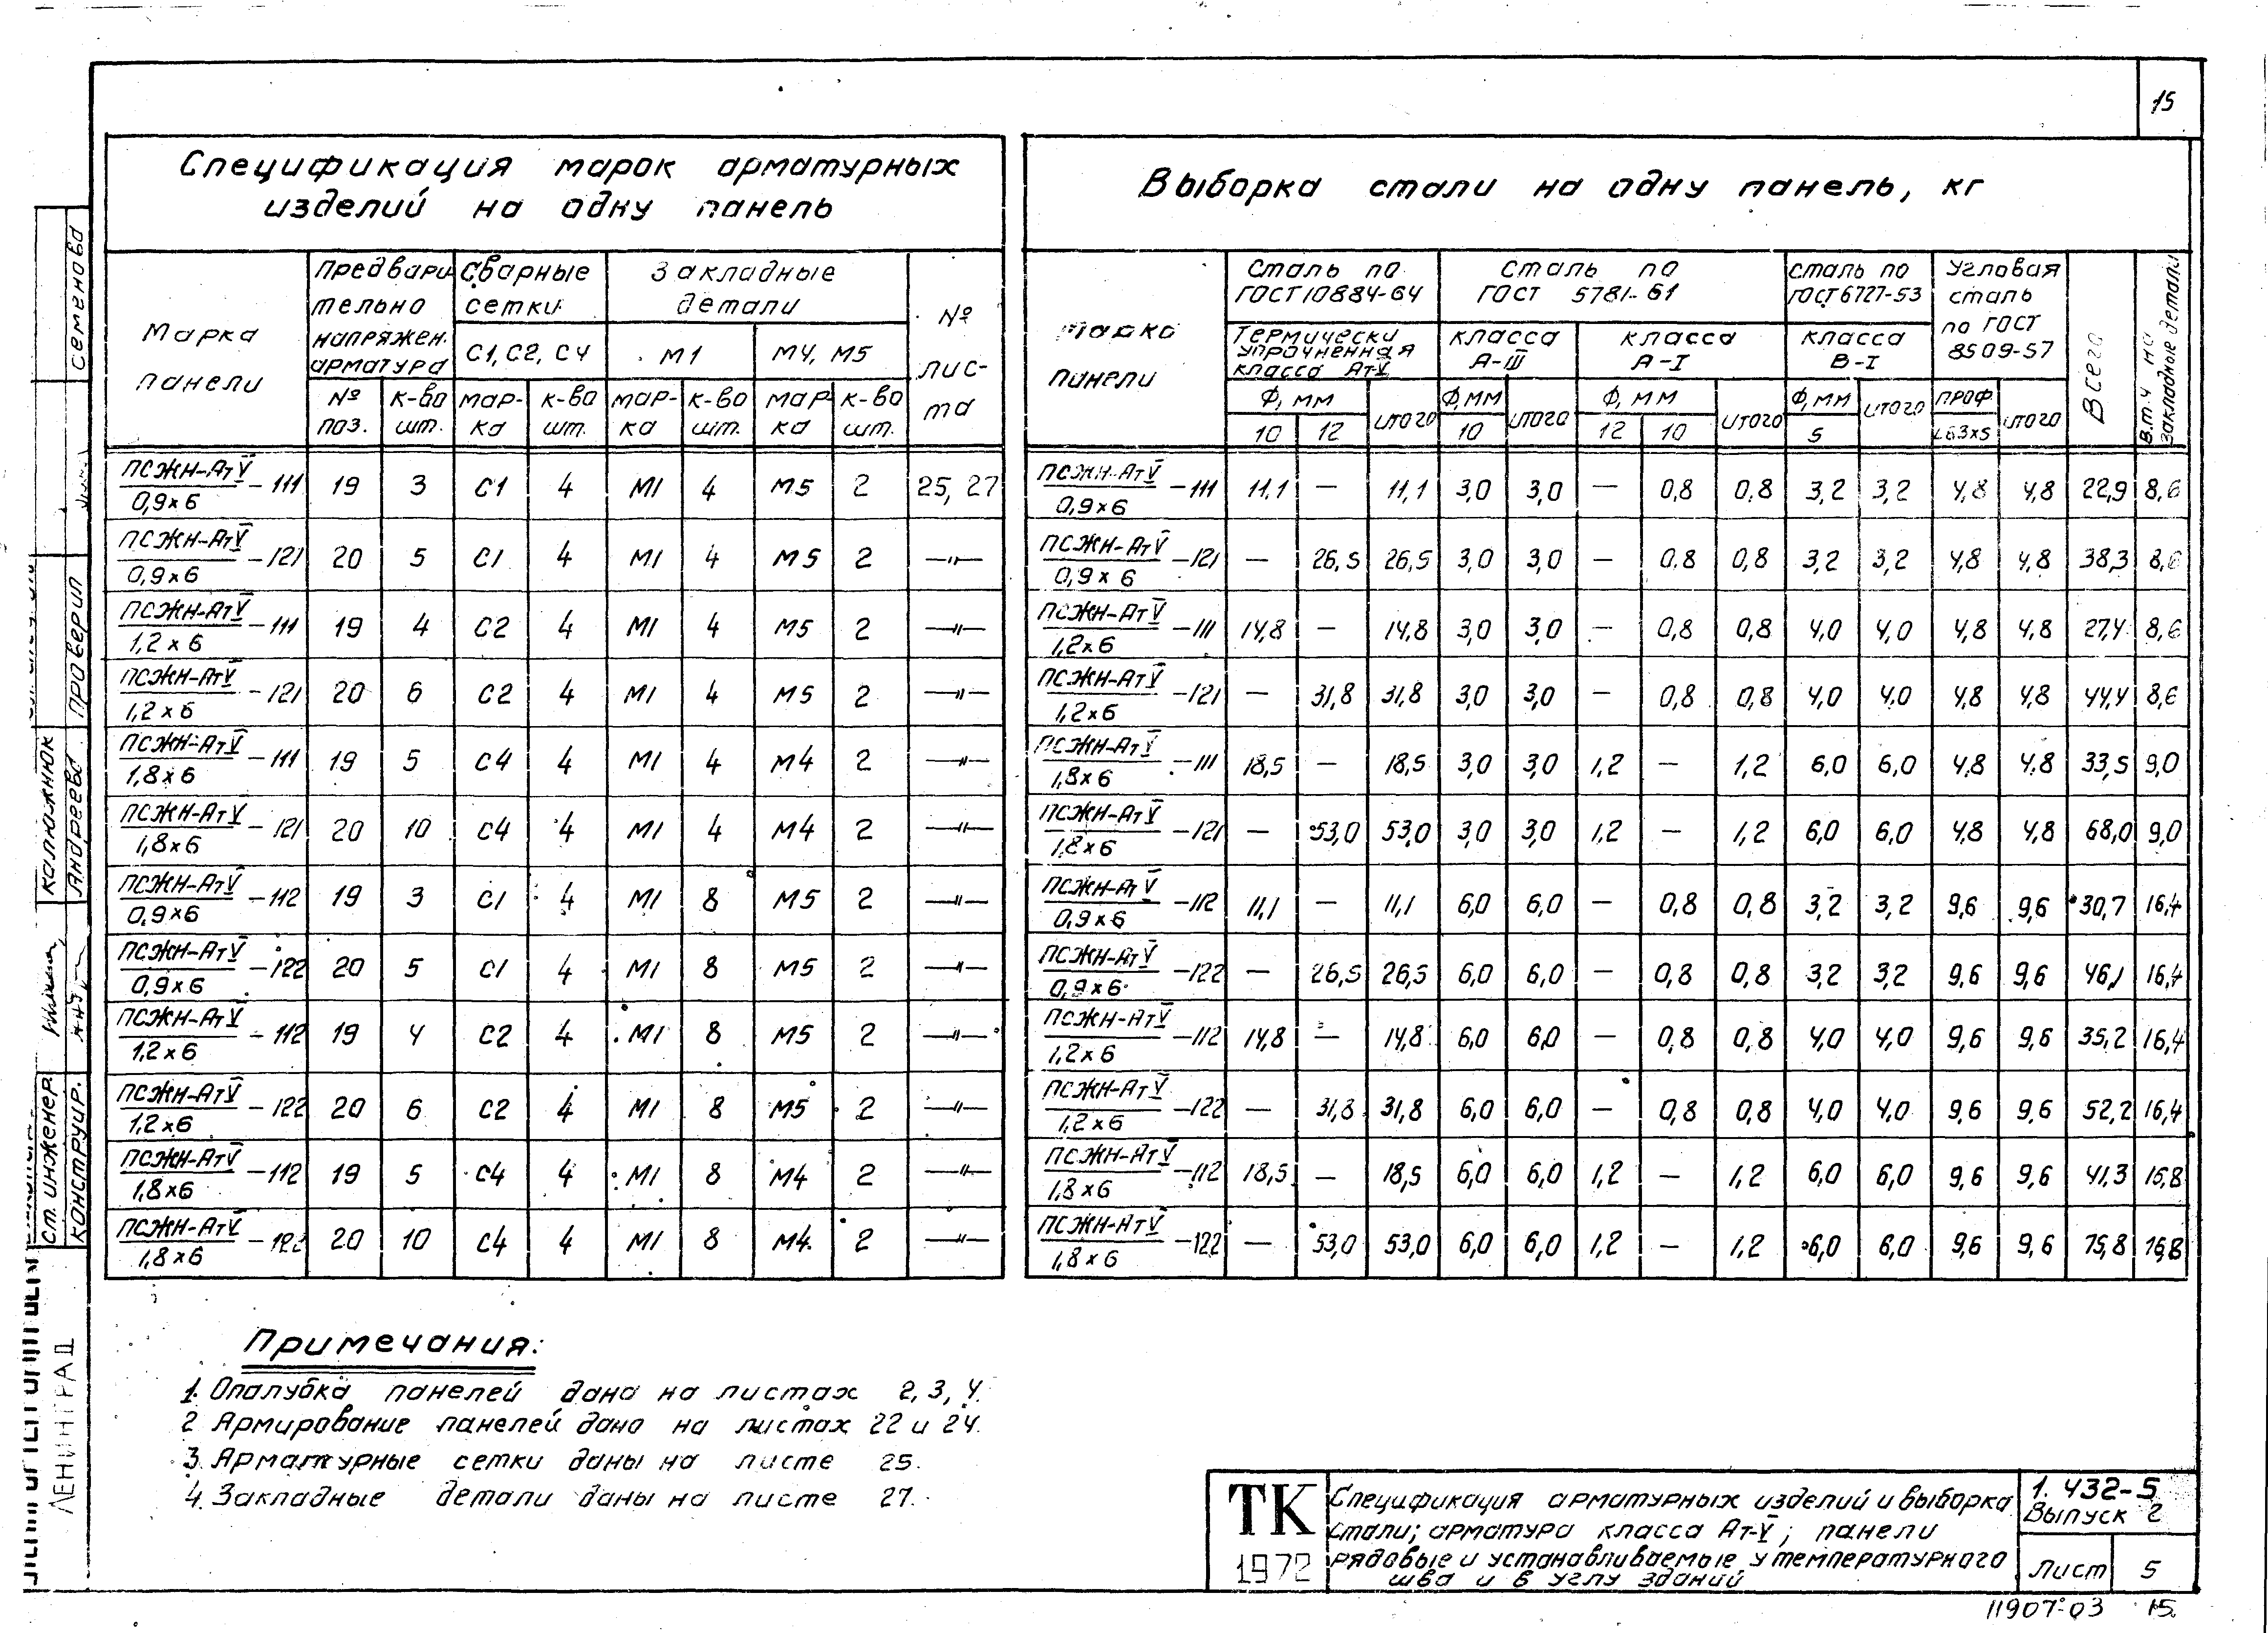 15
Спецификация марок арматурных
изделий на одну панель
Марка панели | Предварительно напряжен. арматура | Сварные сетки | Закладные детали | № листа
С1, С2, С4 | М1 | М4, М5
№ поз. | к-во шт. | марка | к-во шт. | марка | к-во шт. | марка | к-во шт.
ПСЖН-АтV/0,9×6 -111 | 19 | 3 | С1 | 4 | М1 | 4 | М5 | 2 | 25, 27
ПСЖН-АтV/0,9×6 -121 | 20 | 5 | С1 | 4 | М1 | 4 | М5 | 2 | —〃—
ПСЖН-АтV/1,2×6 -111 | 19 | 4 | С2 | 4 | М1 | 4 | М5 | 2 | —〃—
ПСЖН-АтV/1,2×6 -121 | 20 | 6 | С2 | 4 | М1 | 4 | М5 | 2 | —〃—
ПСЖН-АтV/1,8×6 -111 | 19 | 5 | С4 | 4 | М1 | 4 | М4 | 2 | —〃—
ПСЖН-АтV/1,8×6 -121 | 20 | 10 | С4 | 4 | М1 | 4 | М4 | 2 | —〃—
ПСЖН-АтV/0,9×6 -112 | 19 | 3 | С1 | 4 | М1 | 8 | М5 | 2 | —〃—
ПСЖН-АтV/0,9×6 -122 | 20 | 5 | С1 | 4 | М1 | 8 | М5 | 2 | —〃—
ПСЖН-АтV/1,2×6 -112 | 19 | 4 | С2 | 4 | М1 | 8 | М5 | 2 | —〃—
ПСЖН-АтV/1,2×6 -122 | 20 | 6 | С2 | 4 | М1 | 8 | М5 | 2 | —〃—
ПСЖН-АтV/1,8×6 -112 | 19 | 5 | С4 | 4 | М1 | 8 | М4 | 2 | —〃—
ПСЖН-АтV/1,8×6 -122 | 20 | 10 | С4 | 4 | М1 | 8 | М4 | 2 | —〃—
Выборка стали на одну панель, кг
Марка панели | Сталь по ГОСТ 10884-64 | Сталь по ГОСТ 5781-61 | Сталь по ГОСТ 6727-53 | Угловая сталь по ГОСТ 8509-57 | Всего | В.т.ч на закладные детали
Термически упрочненная класса АтV | класса А-III | класса А-I | класса В-I
Ф, мм | итого | Ф, мм | итого | Ф, мм | итого | Ф, мм | итого | проф | итого
10 | 12 | 10 | 12 | 10 | 5 | L63×5
ПСЖН-АтV/0,9×6 -111 | 11,1 | — | 11,1 | 3,0 | 3,0 | — | 0,8 | 0,8 | 3,2 | 3,2 | 4,8 | 4,8 | 22,9 | 8,6
ПСЖН-АтV/0,9×6 -121 | — | 26,5 | 26,5 | 3,0 | 3,0 | — | 0,8 | 0,8 | 3,2 | 3,2 | 4,8 | 4,8 | 38,3 | 8,6
ПСЖН-АтV/1,2×6 -111 | 14,8 | — | 14,8 | 3,0 | 3,0 | — | 0,8 | 0,8 | 4,0 | 4,0 | 4,8 | 4,8 | 27,4 | 8,6
ПСЖН-АтV/1,2×6 -121 | — | 31,8 | 31,8 | 3,0 | 3,0 | — | 0,8 | 0,8 | 4,0 | 4,0 | 4,8 | 4,8 | 44,4 | 8,6
ПСЖН-АтV/1,8×6 -111 | 18,5 | — | 18,5 | 3,0 | 3,0 | 1,2 | — | 1,2 | 6,0 | 6,0 | 4,8 | 4,8 | 33,5 | 9,0
ПСЖН-АтV/1,8×6 -121 | — | 53,0 | 53,0 | 3,0 | 3,0 | 1,2 | — | 1,2 | 6,0 | 6,0 | 4,8 | 4,8 | 68,0 | 9,0
ПСЖН-АтV/0,9×6 -112 | 11,1 | — | 11,1 | 6,0 | 6,0 | — | 0,8 | 0,8 | 3,2 | 3,2 | 9,6 | 9,6 | 30,7 | 16,4
ПСЖН-АтV/0,9×6 -122 | — | 26,5 | 26,5 | 6,0 | 6,0 | — | 0,8 | 0,8 | 3,2 | 3,2 | 9,6 | 9,6 | 46,1 | 16,4
ПСЖН-АтV/1,2×6 -112 | 14,8 | — | 14,8 | 6,0 | 6,0 | — | 0,8 | 0,8 | 4,0 | 4,0 | 9,6 | 9,6 | 35,2 | 16,4
ПСЖН-АтV/1,2×6 -122 | — | 31,8 | 31,8 | 6,0 | 6,0 | — | 0,8 | 0,8 | 4,0 | 4,0 | 9,6 | 9,6 | 52,2 | 16,4
ПСЖН-АтV/1,8×6 -112 | 18,5 | — | 18,5 | 6,0 | 6,0 | 1,2 | — | 1,2 | 6,0 | 6,0 | 9,6 | 9,6 | 41,3 | 16,8
ПСЖН-АтV/1,8×6 -122 | — | 53,0 | 53,0 | 6,0 | 6,0 | 1,2 | — | 1,2 | 6,0 | 6,0 | 9,6 | 9,6 | 75,8 | 16,8
Примечания:
1. Опалубка панелей дана на листах 2, 3, 4.
2 Армирование панелей дано на листах 22 и 24.
3. Арматурные сетки даны на листе 25.
4. Закладные детали даны на листе 27.
ТК
1972
Спецификация арматурных изделий и выборка
стали; арматура класса Ат-V; панели
рядовые и устанавливаемые у температурного
шва и в углу зданий
1.432-5
Выпуск 2
Лист 5
11907-03 15
Семенова
Проверил
Калюжнюк
Андреева
Ст. инженер
Конструир.
ЛЕНИНГРАД